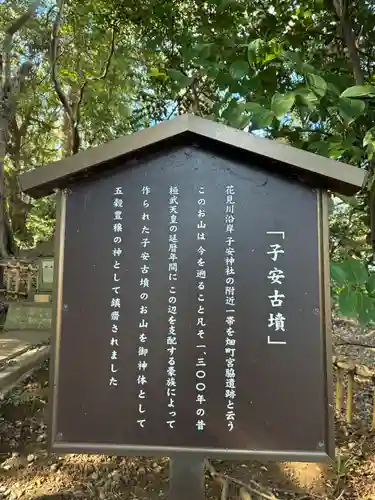 「子安古墳」
花見川沿岸子安神社の附近一帯を畑町宮脇遺跡と云う
このお山は今を遡ること凡そ一、三〇〇年の昔
桓武天皇の延暦年間にこの辺を支配する豪族によって
作られた子安古墳のお山を御神体として
五穀豊穣の神として鎮齋されました